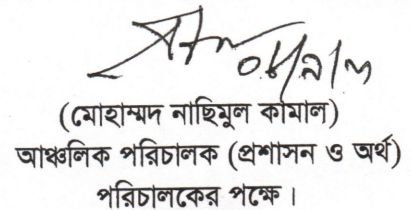 (মোহাম্মদ নাছিমুল কামাল)
আঞ্চলিক পরিচালক (প্রশাসন ও অর্থ)
পরিচালকের পক্ষে।